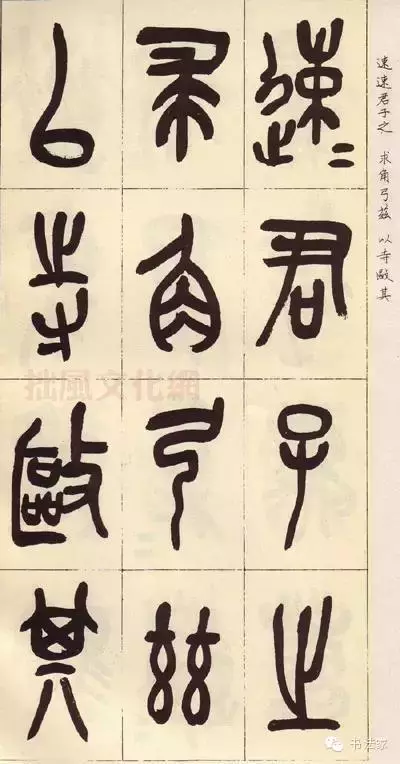 速速君子之 求角弓兹 以寺敺其
速〻君子之
求角弓兹
以寺敺其
拙風文化網
书法家